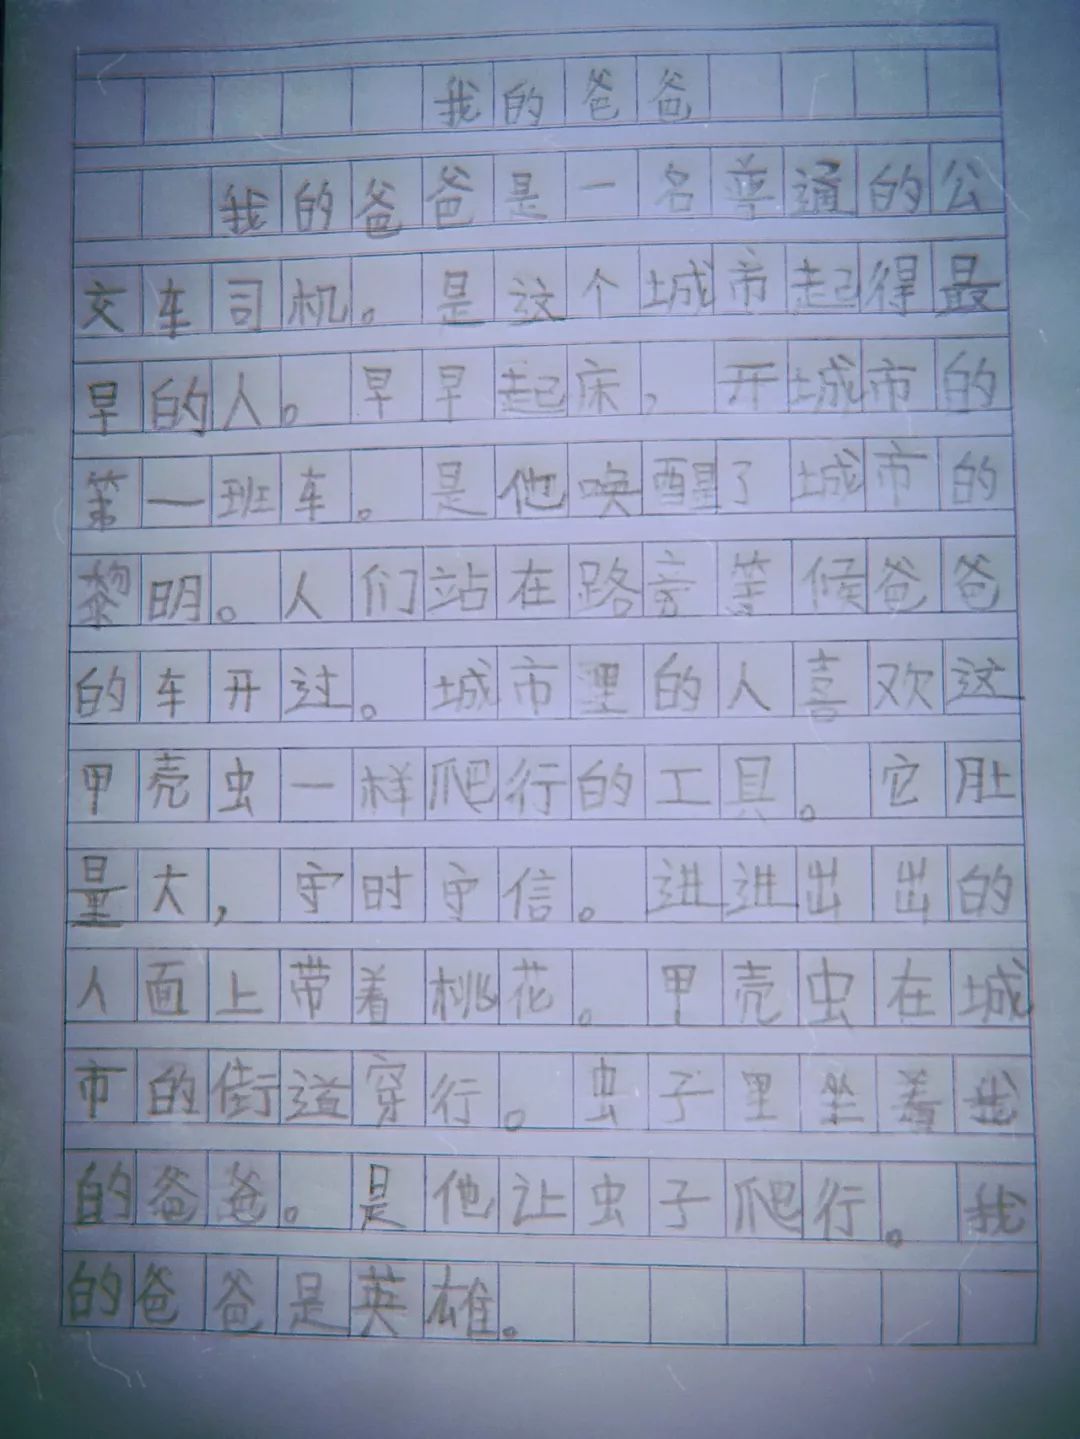 我的爸爸
我的爸爸是一名普通的公
交车司机。是这个城市起得最
早的人。早早起床,开城市的
第一班车。是他唤醒了城市的
黎明。人们站在路旁等候爸爸
的车开过。城市里的人喜欢这
甲壳虫一样爬行的工具。它肚
量大,守时守信。进进出出的
人面上带着桃花。甲壳虫在城
市的街道穿行。虫子里坐着我
的爸爸。是他让虫子爬行。我
的爸爸是英雄。